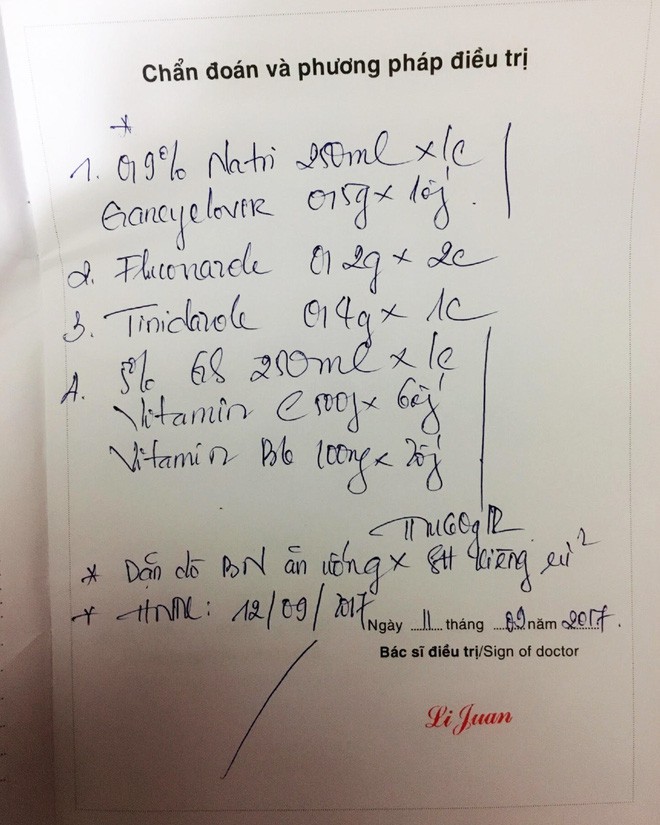 Chẩn đoán và phương pháp điều trị
*
1. 0,9% Natri 250ml x 1c
Gancyclover 0,5g x 1ố
2. Fluconazole 0,2g x 2c
3. Tinidazole 0,4g x 1c
4. 5% GS 250ml x 1c
Vitamin C 500g x 6ố
Vitamin B6 100mg x 2ố
* Dặn dò BN ăn uống x SH kiêng cử
* HNTK: 12/09/2017
Ngày 11 tháng 09 năm 2017.
Bác sĩ điều trị/Sign of doctor
Li Juan